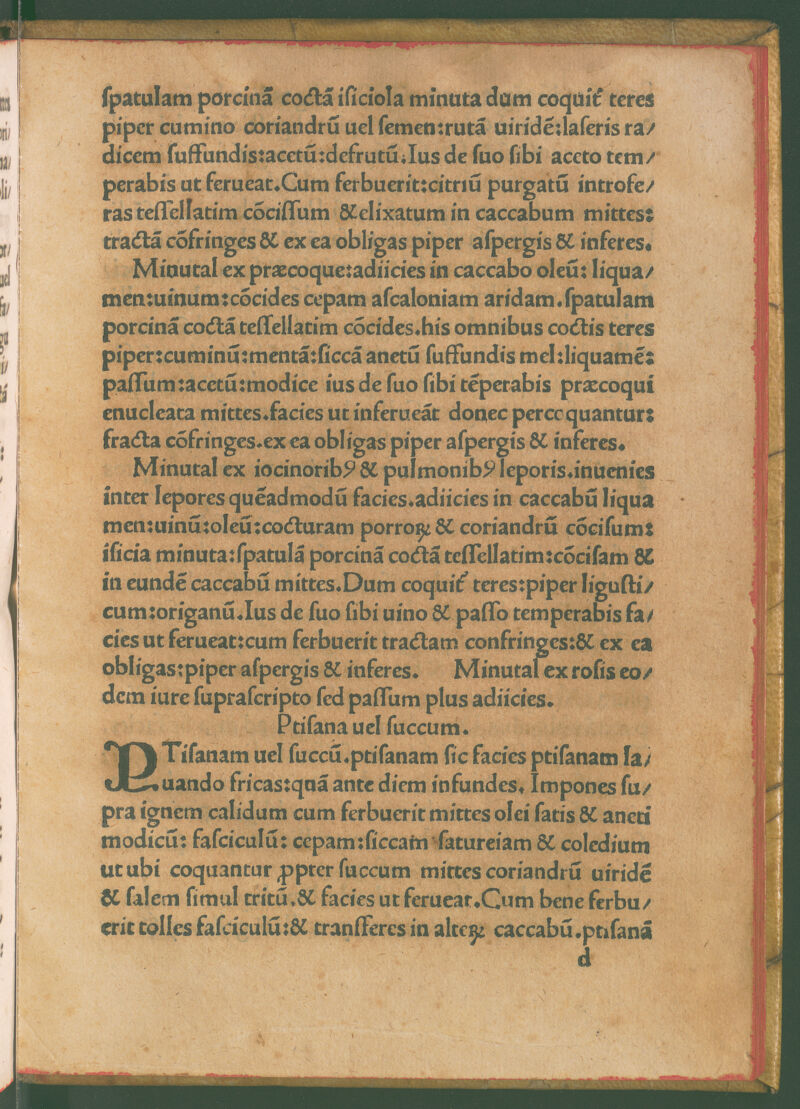 ſpatulam porcinã coctã iſiciola minuta dum coquiť teres
piper cumino coriandrũ uel ſemen:rutã uiridẽ:laſeris ra/
dicem ſuffundis:acetũ:defrutũ.Ius de ſuo ſibi aceto tem/
perabis ut ferueat.Cum ferbuerit:citriũ purgatũ introſe/
ras teſſellatim cõciſſum &elixatum in caccabum mittes:
tractã cõfringes & ex ea obligas piper aſpergis & inferes.
Minutal ex præcoque:adiicies in caccabo oleũ: liqua/
men:uinum:cõcides cepam aſcaloniam aridam.ſpatulam
porcinã coctã teſſellatim cõcides.his omnibus coctis teres
piper:cuminũ:mentã:ſiccã anetũ ſuffundis mel:liquamẽ:
paſſum:acetũ:modice ius de ſuo ſibi tẽperabis præcoqui
enucleata mittes.facies ut inferueãt donec percoquantur:
fracta cõfringes.ex ea obligas piper aſpergis & inferes.
Minutal ex iocinoribꝰ & pulmonibꝰ leporis.inuenies
inter lepores quẽadmodũ facies.adiicies in caccabũ liqua
men:uinũ:oleũ:cocturam porroꝝ & coriandrũ cõciſum:
iſicia minuta:ſpatulã porcinã coctã teſſellatim:cõciſam &
in eundẽ caccabũ mittes.Dum coquiť teres:piper liguſti/
cum:origanũ.Ius de ſuo ſibi uino & paſſo temperabis fa/
cies ut ferueat:cum ferbuerit tractam confringes:& ex ea
obligas:piper aſpergis & inferes. Minutal ex roſis eo/
dem iure ſupraſcripto ſed paſſum plus adiicies.
Ptiſana uel ſuccum.
PTiſanam uel ſuccũ.ptiſanam ſic facies ptiſanam la/
uando fricas:quã ante diem infundes. Impones ſu/
pra ignem calidum cum ferbuerit mittes olei ſatis & aneti
modicũ: faſciculũ: cepam:ſiccam ſatureiam & coledium
ut ubi coquantur ꝓpter ſuccum mittes coriandrũ uiridẽ
& ſalem ſimul tritũ.& facies ut ferueat.Cum bene ferbu/
erit tolles faſciculũ:& tranſferes in alteꝝ caccabũ.ptiſanã
d